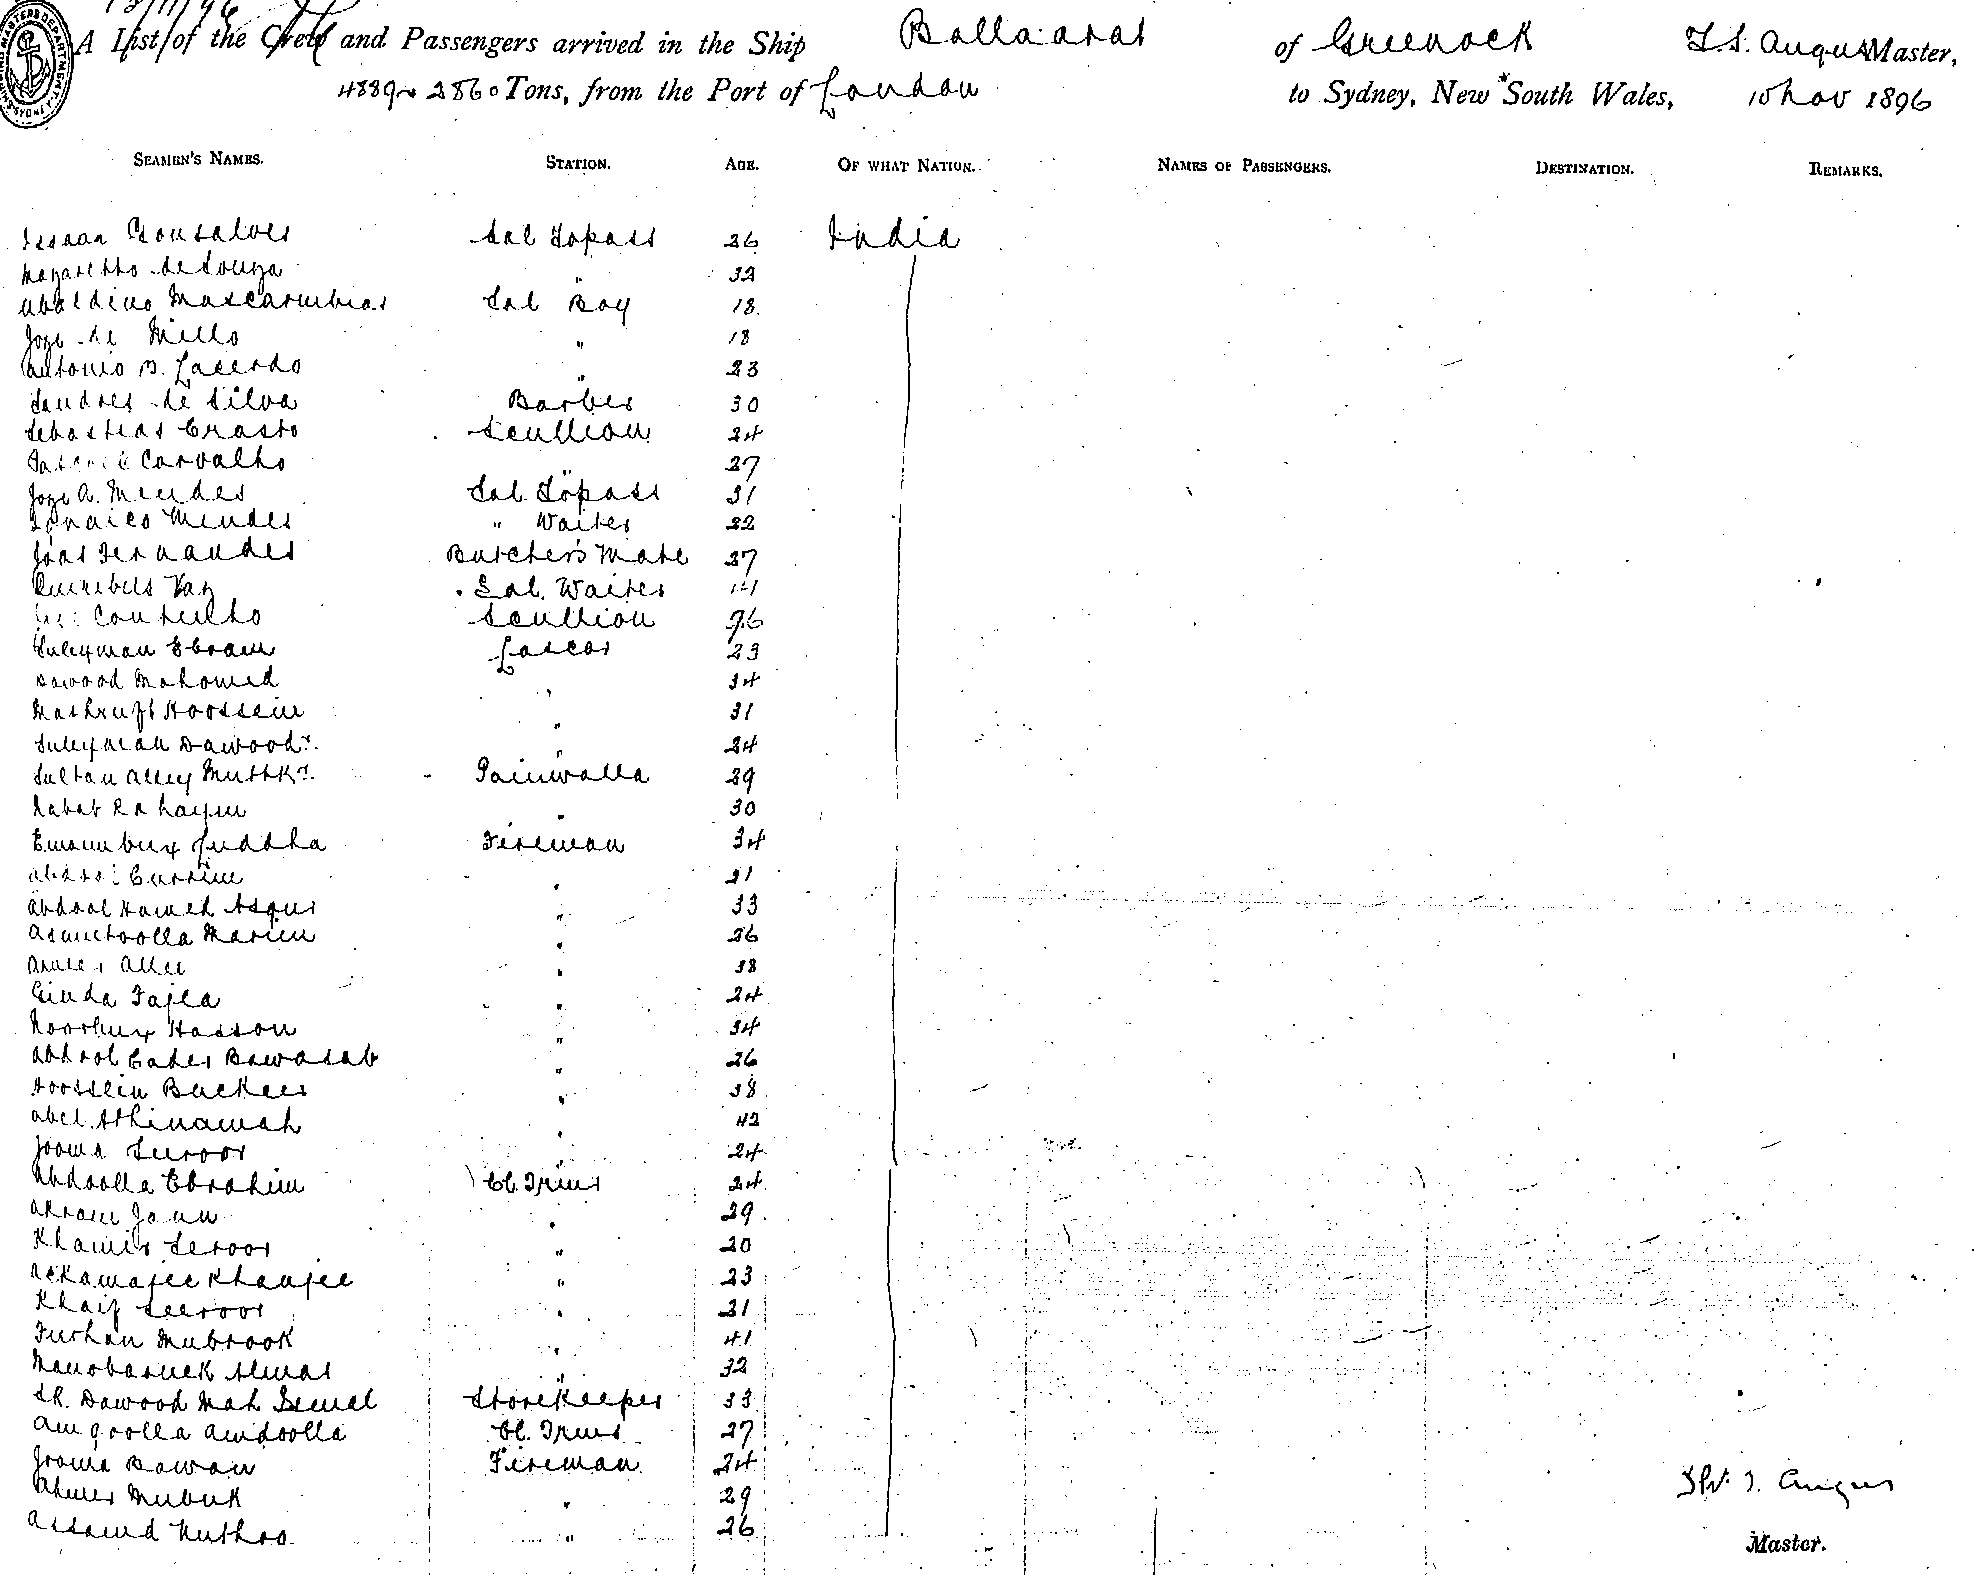 13/11/96
A List of the Crew and Passengers arrived in the Ship Ballaarat of Greenock T. S. Angus Master,
4889 2860 Tons, from the Port of London to Sydney, New South Wales, 10 Nov 1896
SEAMEN'S NAMES. STATION. AGE. OF WHAT NATION. NAMES OF PASSENGERS. DESTINATION. REMARKS.
Issaac Gonsalves Sal Topass 26 India
Nazaretho de Souza " 32
Ubaldino Mascarenhas Sal Boy 18
Joze de Mello " 18
Antonio B. Lacerdo " 23
Sandres de Silva Barber 30
Sebastias Crasto Scullion 24
Carvalho 27
Joze A. Mendes Sal Topass 31
Ignaico Mendes " Waiter 22
Joas Fernandes Butcher's Mate 27
Vaz Sal. Waiter
Coutelho Scullion
Suleyman Ebram Lascar 23
Dawood Mahomed " 34
Mashruft Hoossein " 31
Suleyman Dawood " 24
Sultan Alley Muthkr. Paniwalla 29
Rahaym " 30
Emambux Juddha Fireman 34
Abdool Currim " 21
Abdool Hamed Asgur " 33
Asmutoolla Marim " 26
Allee " 38
Ginda Fajla " 24
Noorbux Hasson " 34
Abdool Cader Bawasab " 26
Hoossein Buckees " 38
Abel Athinamah " 42
Jooma Suroor " 24
Abdoolla Ebrahim Cl. Trmr 24
Akram Jann " 29
Khamis Seroor " 20
Khanjee " 23
Khaif Seeroor " 21
Furhan Mubrook " 41
Almas " 32
SK. Dawood Mah Ismal Storekeeper 33
Amdoolla Cl. Trmr 27
Jooma Bawan Fireman 24
Ahmer Mubuk " 29
Assamd Nuthoo " 26
Angus
Master.